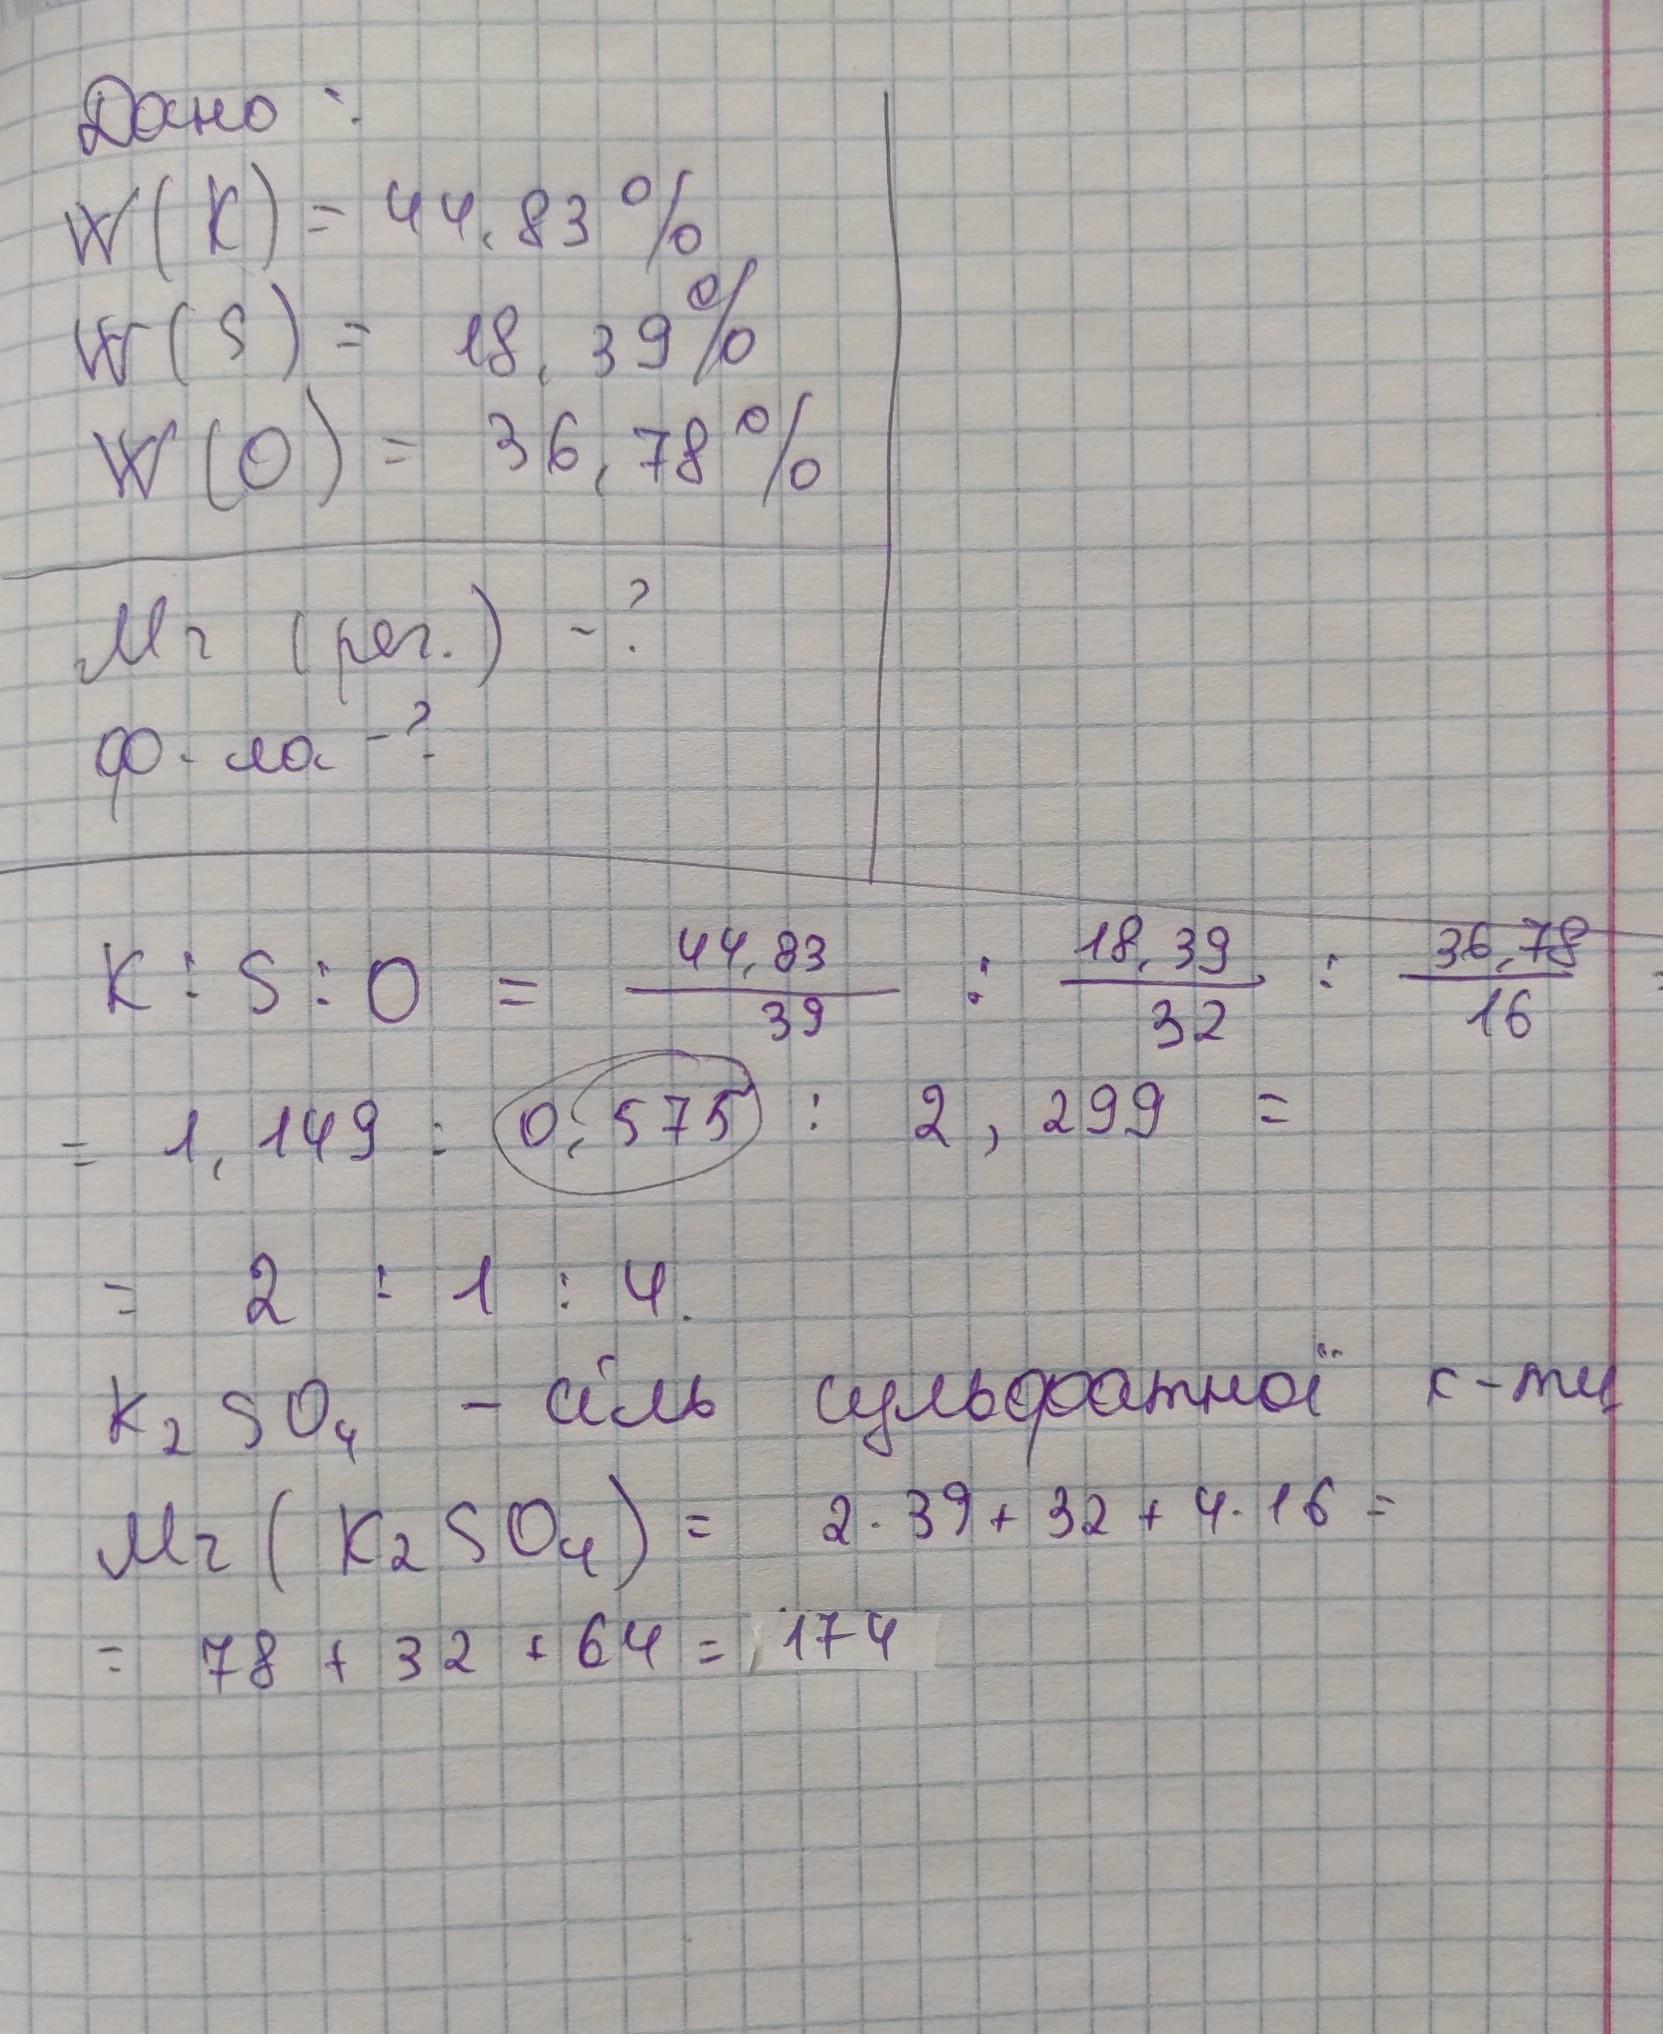 Дано:
W(K) = 44,83%
W(S) = 18,39%
W(O) = 36,78%
Mr (реч.) -?
ф-ла -?
K : S : O = 44,83/39 : 18,39/32 : 36,78/16 =
= 1,149 : 0,575 : 2,299 =
= 2 : 1 : 4.
K₂SO₄ - сіль сульфатної к-ти
Mr(K₂SO₄) = 2·39+32+4·16=
= 78 + 32 + 64 = 174